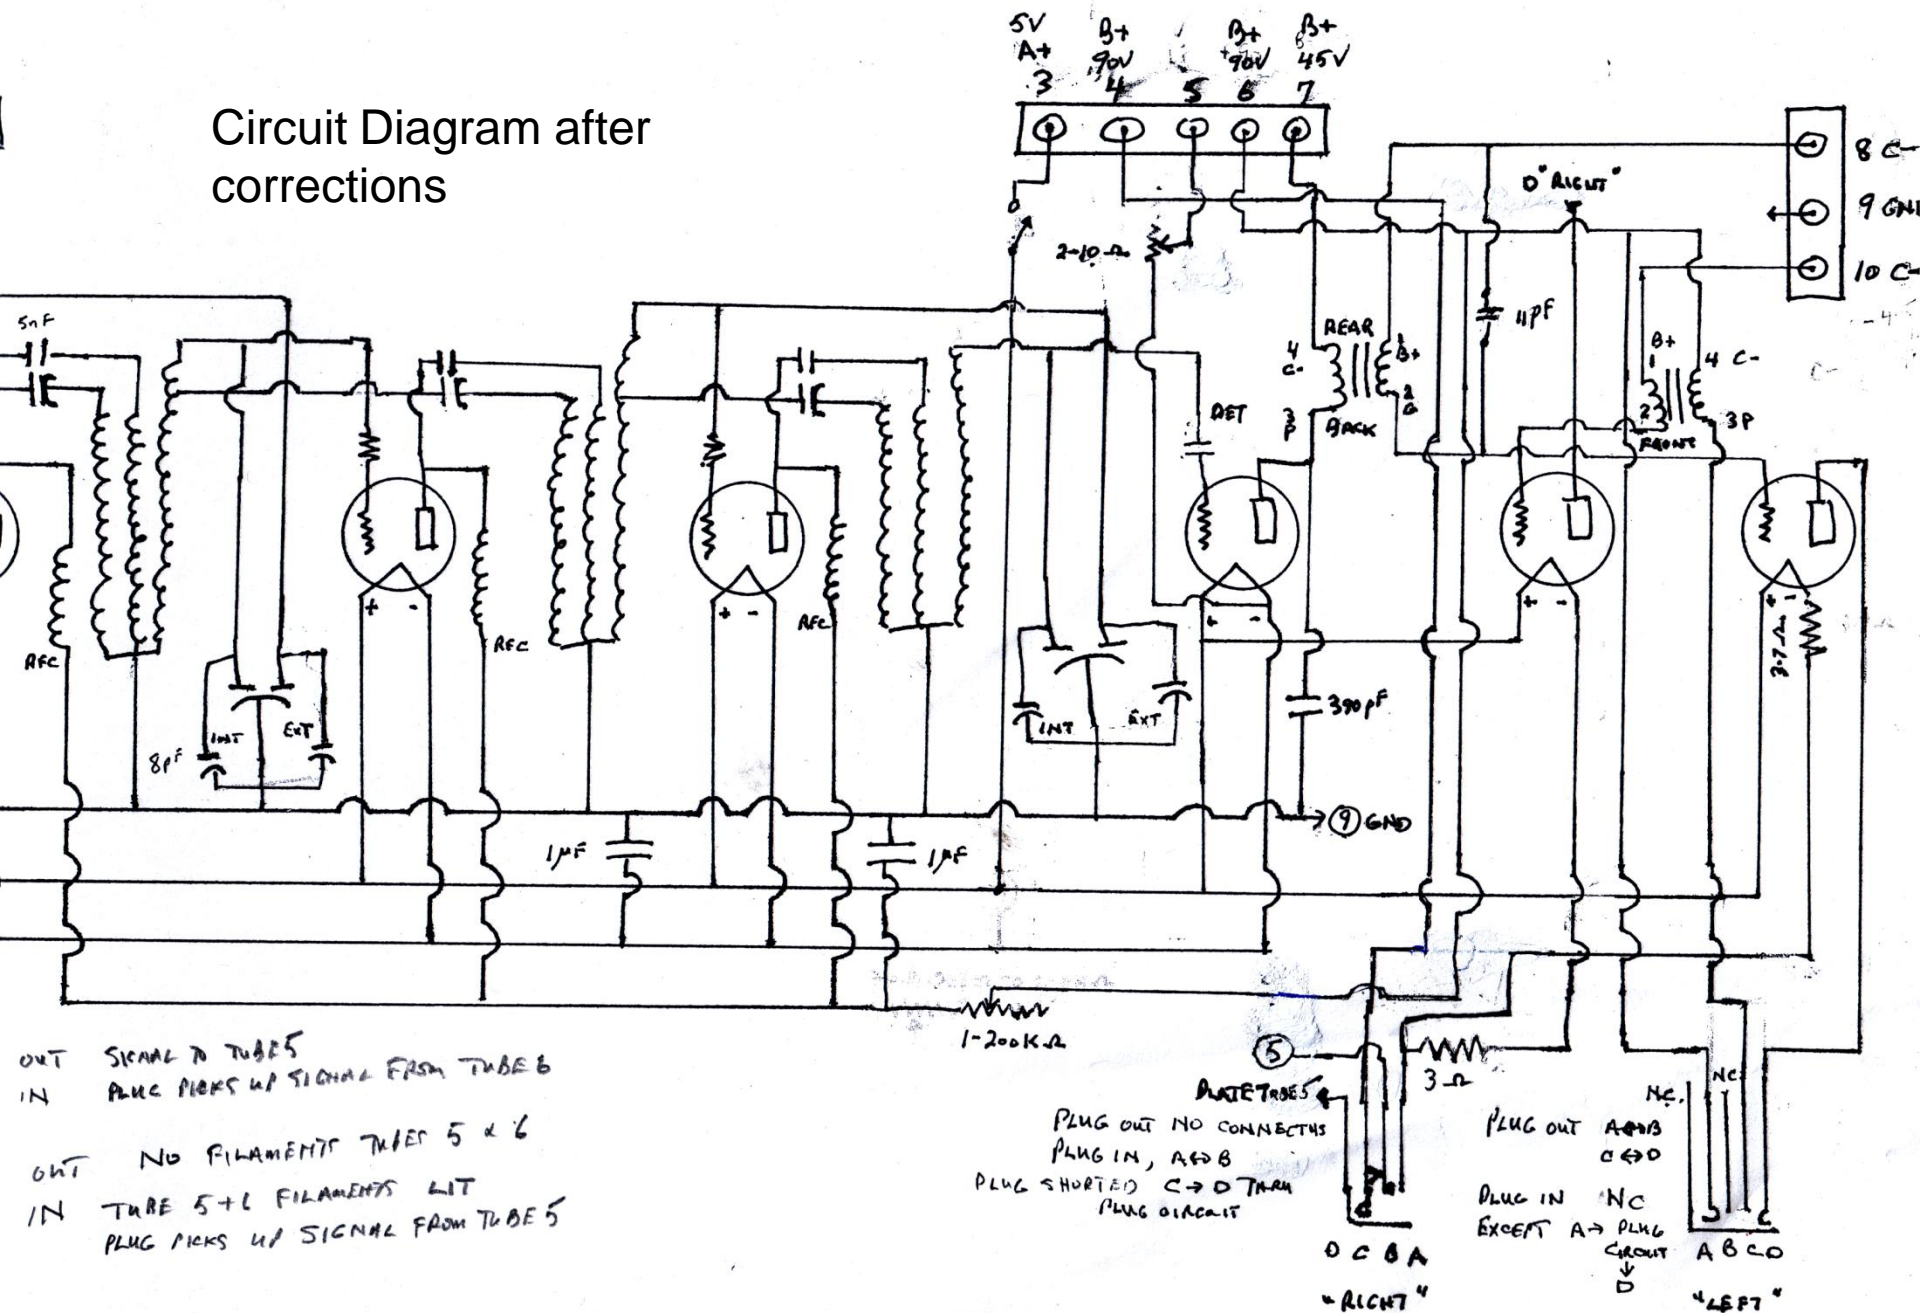 Circuit Diagram after
corrections
5V
A+
3
B+
90V
4
5
B+
+90V
6
B+
45V
7
8 C-
9 GND
10 C-
D "RIGHT"
2-10 Ω
5nF
11pF
REAR
4
C-
3
P
BACK
1
B+
2
G
B+
1
2
4 C-
3P
FRONT
DET
+ -
+ -
+ -
+ -
+ -
3.7 Ω
RFC
RFC
RFC
8pF
INT
EXT
INT
EXT
390pF
9 GND
1µF
1µF
1-200K Ω
5
3 Ω
PLATE TUBE 5
OUT SIGNAL TO TUBE 5
IN PLUG PICKS UP SIGNAL FROM TUBE 6
OUT NO FILAMENTS TUBES 5 & 6
IN TUBE 5+6 FILAMENTS LIT
PLUG PICKS UP SIGNAL FROM TUBE 5
PLUG OUT NO CONNECTNS
PLUG IN, A↔B
PLUG SHORTED C→D THRU
PLUG CIRCUIT
D C B A
"RIGHT"
N.C.
NC
PLUG OUT A↔B
C↔D
PLUG IN NC
EXCEPT A→ PLUG
CIRCUIT
↓
D
A B C D
"LEFT"